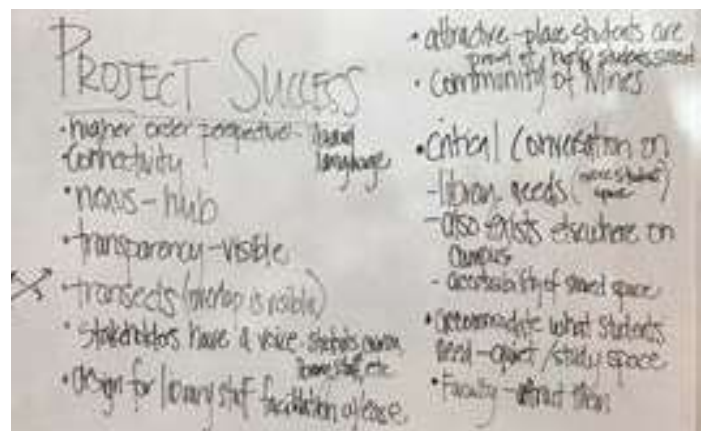 PROJECT SUCCESS
• higher order perspective -
language
connectivity
• nexus - hub
• transparency - visible
• transects (overlap is visible)
• Stakeholders have a voice students
library, staff, etc
• design for library staff facilitation of ease
• attractive - place students are
proud of
• Community of Mines
• critical conversation on
- library needs (more student
space)
- also exists elsewhere on
campus
- accessibility of shared space
• accommodate what students
need - quiet / study space
• Faculty - attract them